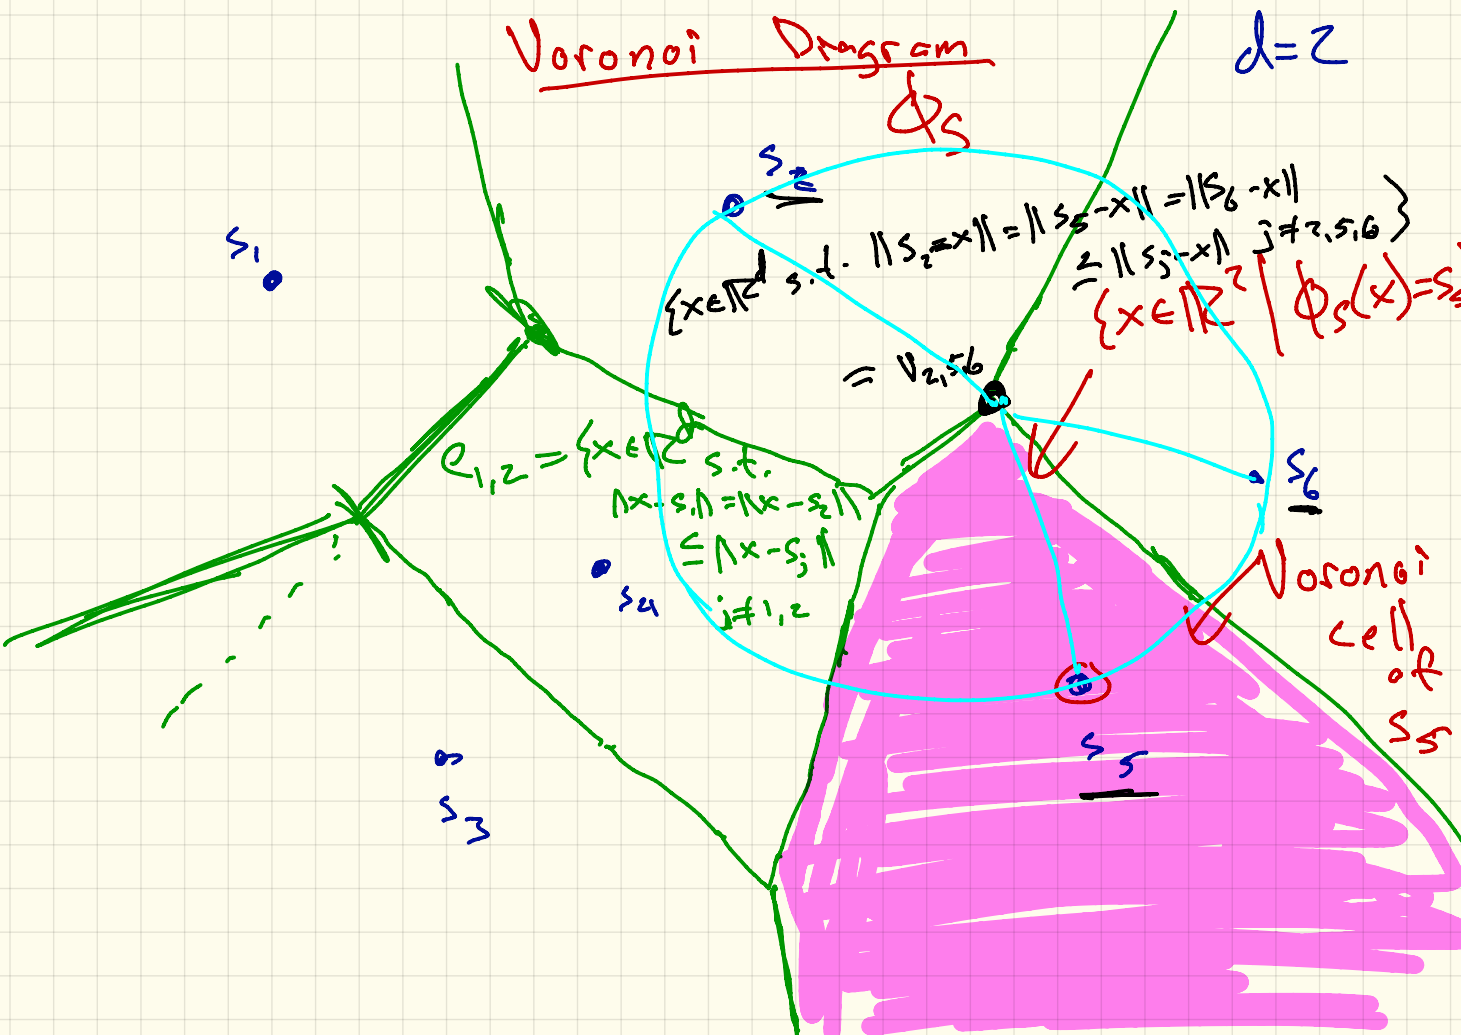 Voronoi Diagram
d=2
ϕ_S
s_2
s_1
{x∈ℝ^d s.t. ||s_2-x||=||s_5-x||=||s_6-x||
≤ ||s_j-x|| j≠2,5,6}
{x∈ℝ^2 | ϕ_S(x)=s_5
= v_{2,5,6}
e_{1,2} = {x∈ℝ^d s.t.
||x-s_1||=||x-s_2||
≤ ||x-s_j||
j≠1,2
s_6
s_4
Voronoi
cell
of
s_5
s_5
s_3